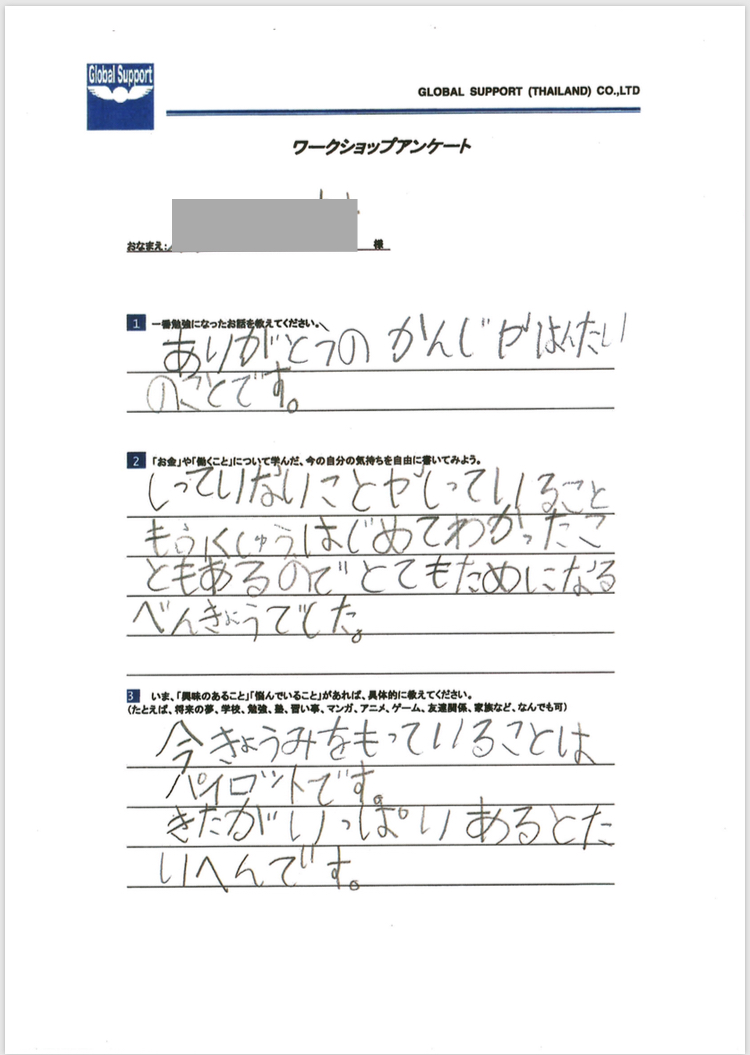 Global Support
GLOBAL SUPPORT (THAILAND) CO.,LTD
ワークショップアンケート
おなまえ: 様
1 一番勉強になったお話を教えてください。
ありがとうの かんじや はんたい
のことです。
2 「お金」や「働くこと」について学んだ、今の自分の気持ちを自由に書いてみよう。
しっていないことや しっていること
もう くしゅう はじめてわかったこ
ともあるので とてもためになる
べんきょうでした。
3 いま、「興味のあること」「悩んでいること」があれば、具体的に教えてください。
(たとえば、将来の夢、学校、勉強、塾、習い事、マンガ、アニメ、ゲーム、友達関係、家族など、なんでも可)
今きょうみをもっていることは
パイロットです。
きたがいっぱい あるとた
いへんです。